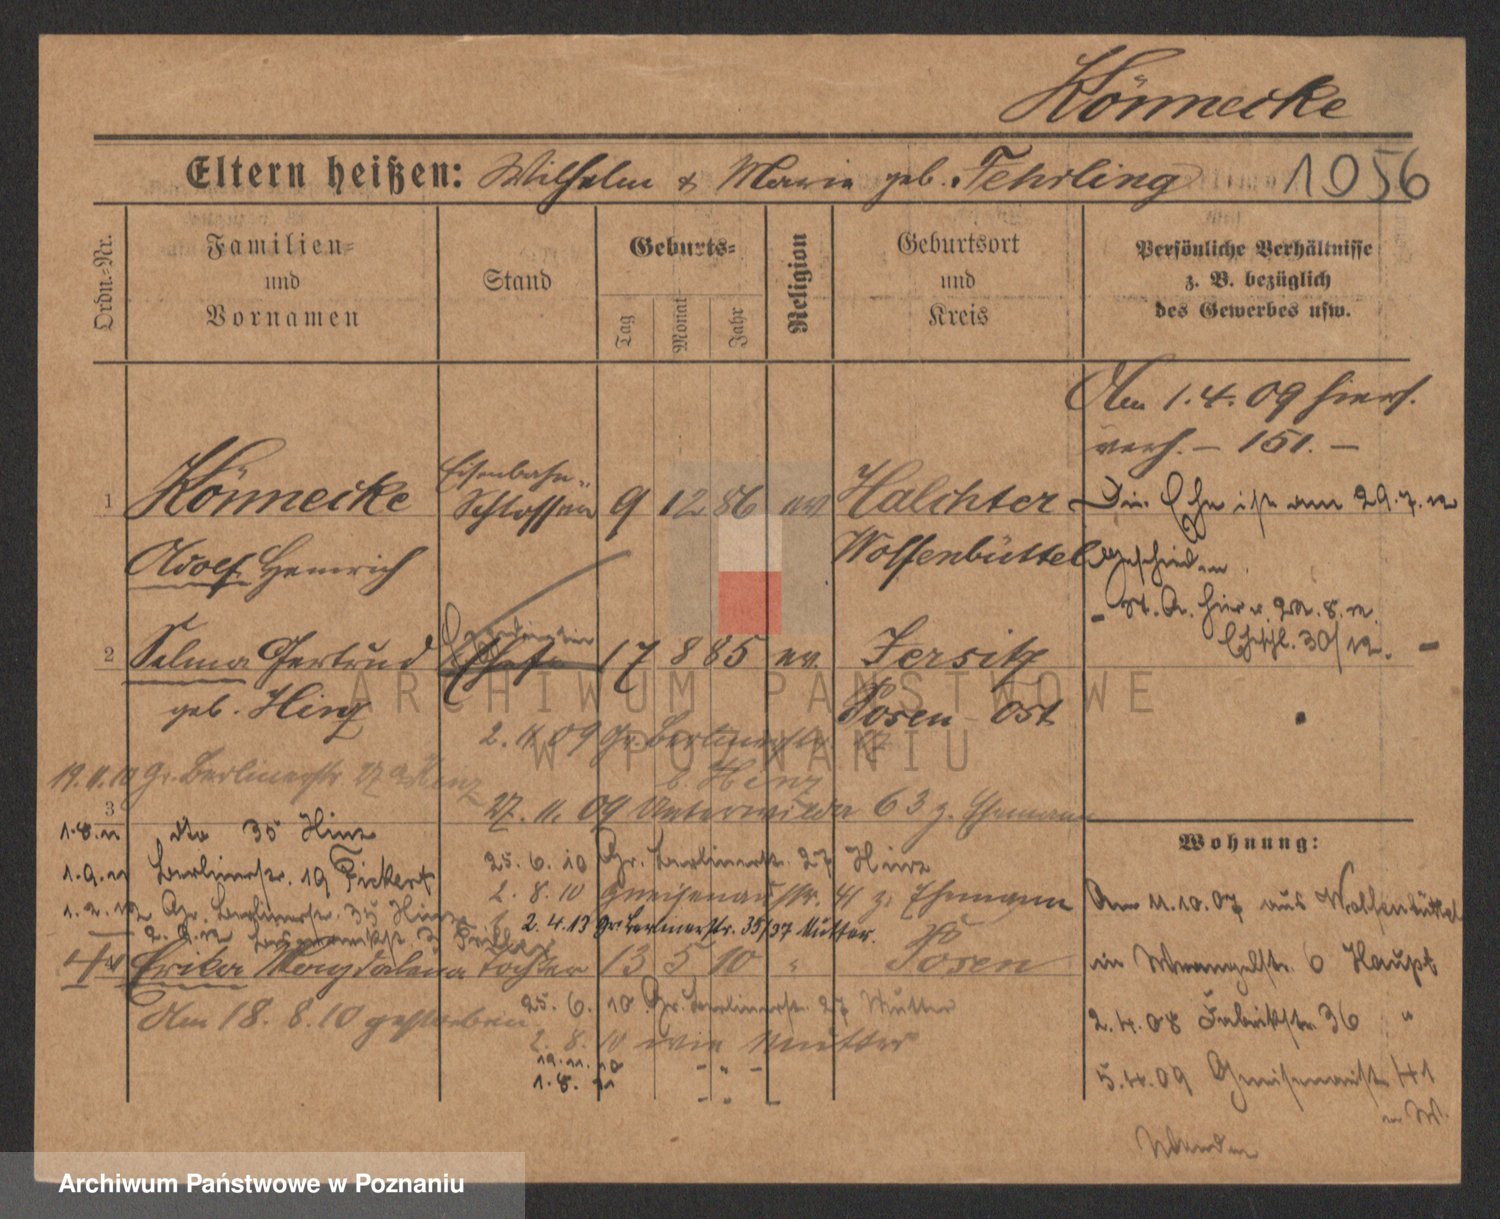 Könnecke
Eltern heißen: Wilhelm & Marie geb. Fehrling 1056
Ordn.-Nr.
Familien-
und
Vornamen
Stand
Geburts-
Tag
Monat
Jahr
Religion
Geburtsort
und
Kreis
Persönliche Verhältnisse
z. B. bezüglich
des Gewerbes usw.
Am 1.4.09 hiers.
verh. – 151. –
1 Könnecke Eisenbahn-
Schlosser 9 12 86 ev Halchter
Adolf Heinrich Wolfenbüttel
Die Ehe ist am 29.7.12
geschieden
2 Selma Gertrud Ehefr 17 8 85 ev. Jersitz
geb. Hinz Posen Ost
2. 11. 09 Gr. Berlinerstr.
b. Hinz
19.11.10 Gr. Berlinerstr. 27
3
27. 11. 09 Unterwilda 63 z. Ehemann
1.8.11 dto 35 Hinz
25. 6. 10 Gr. Berlinerstr. 27 Hinz
1.9.11 Berlinerstr. 19 Fickert
2. 8. 10 Gneisenaustr. 41 z. Ehemann
1.2.12 Gr. Berlinerstr. 35 Hinz
2.4.13 Gr. Berlinerstr. 35/37 Mutter.
Erika Magdalena Tochter 13 5 10 " Posen
Am 18. 8. 10 gestorben
25. 6. 10 Gr. Berlinerstr. 27 Mutter
2. 8. 10 wie Mutter
19. 11. 10 – " –
1. 8. 11 – " –
Wohnung:
Am 11.10.07 aus Wolfenbüttel
in Wrangelstr. 6 Haupt
2.4.08 Fabrikstr. 36 "
5.4.09 Gneisenaustr. 41
ARCHIWUM PAŃSTWOWE
W POZNANIU
Archiwum Państwowe w Poznaniu